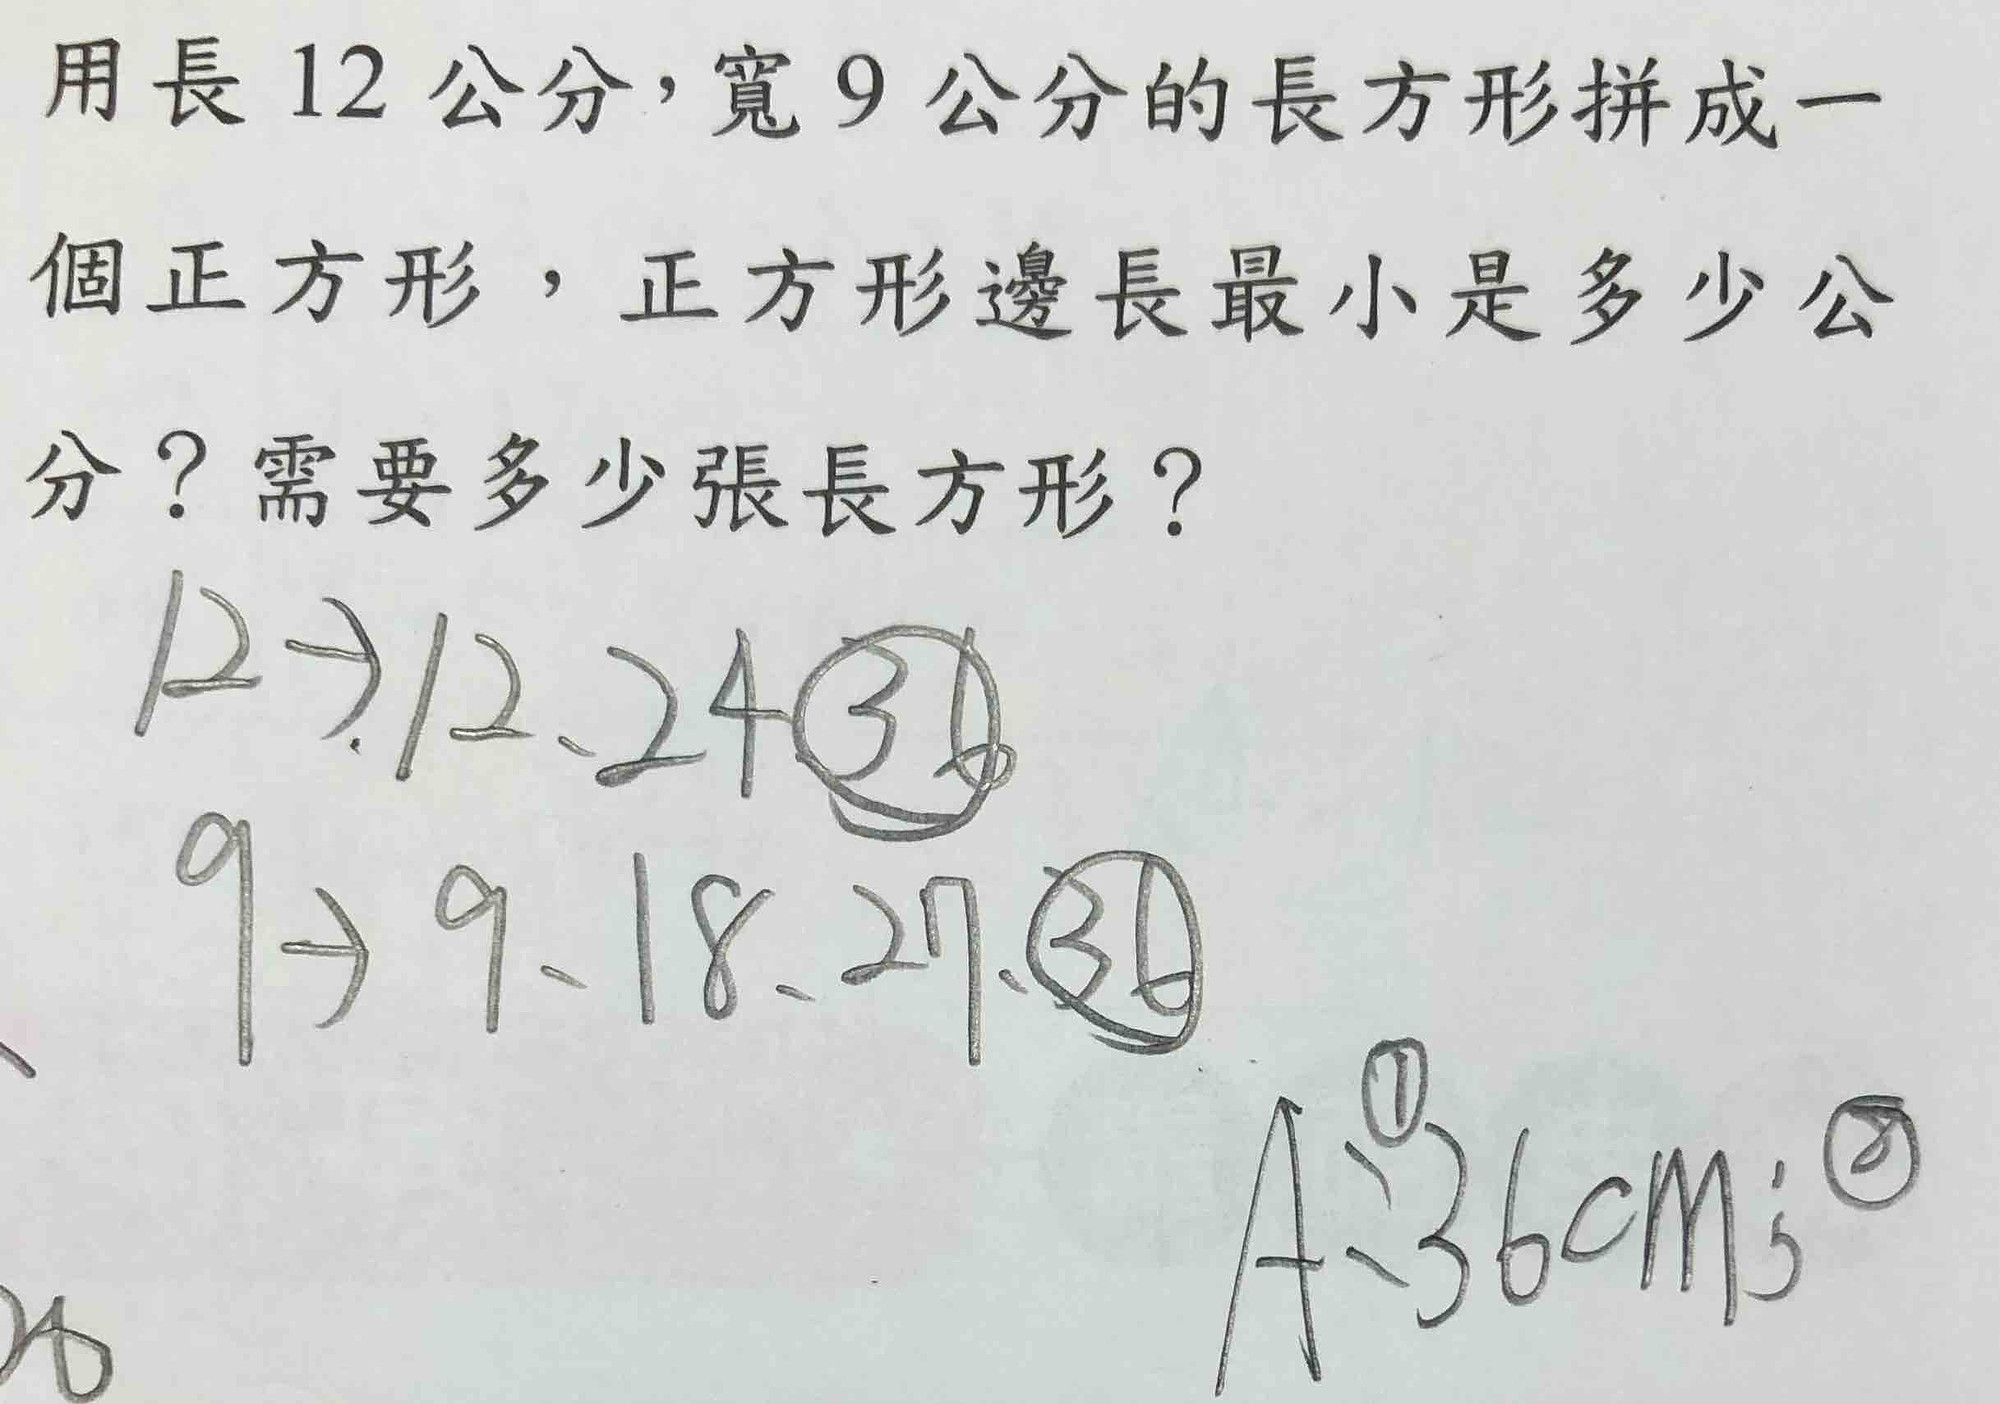 用長 12 公分，寬 9 公分的長方形拼成一
個正方形，正方形邊長最小是多少公
分？需要多少張長方形？
12→12、24、36
9→9、18、27、36
A：①36cm；②